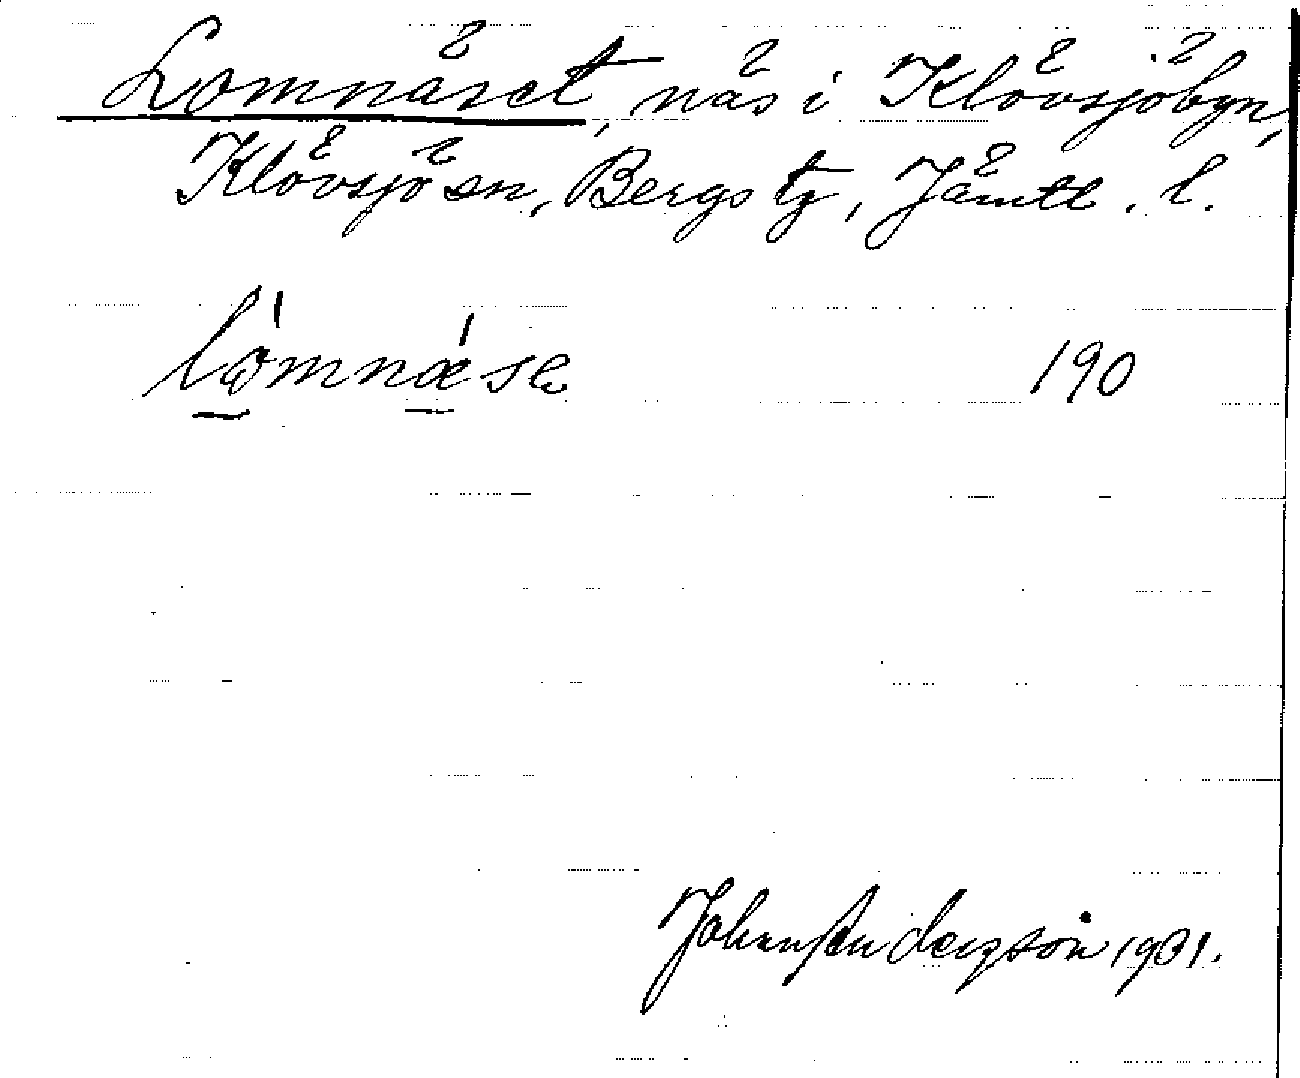 Lomnäset, näs i Klövsjöbyn,
Klövsjö sn, Bergs tg, Jämtl. l.
lòmnǽsa 190
Johan Anderzson 1931.